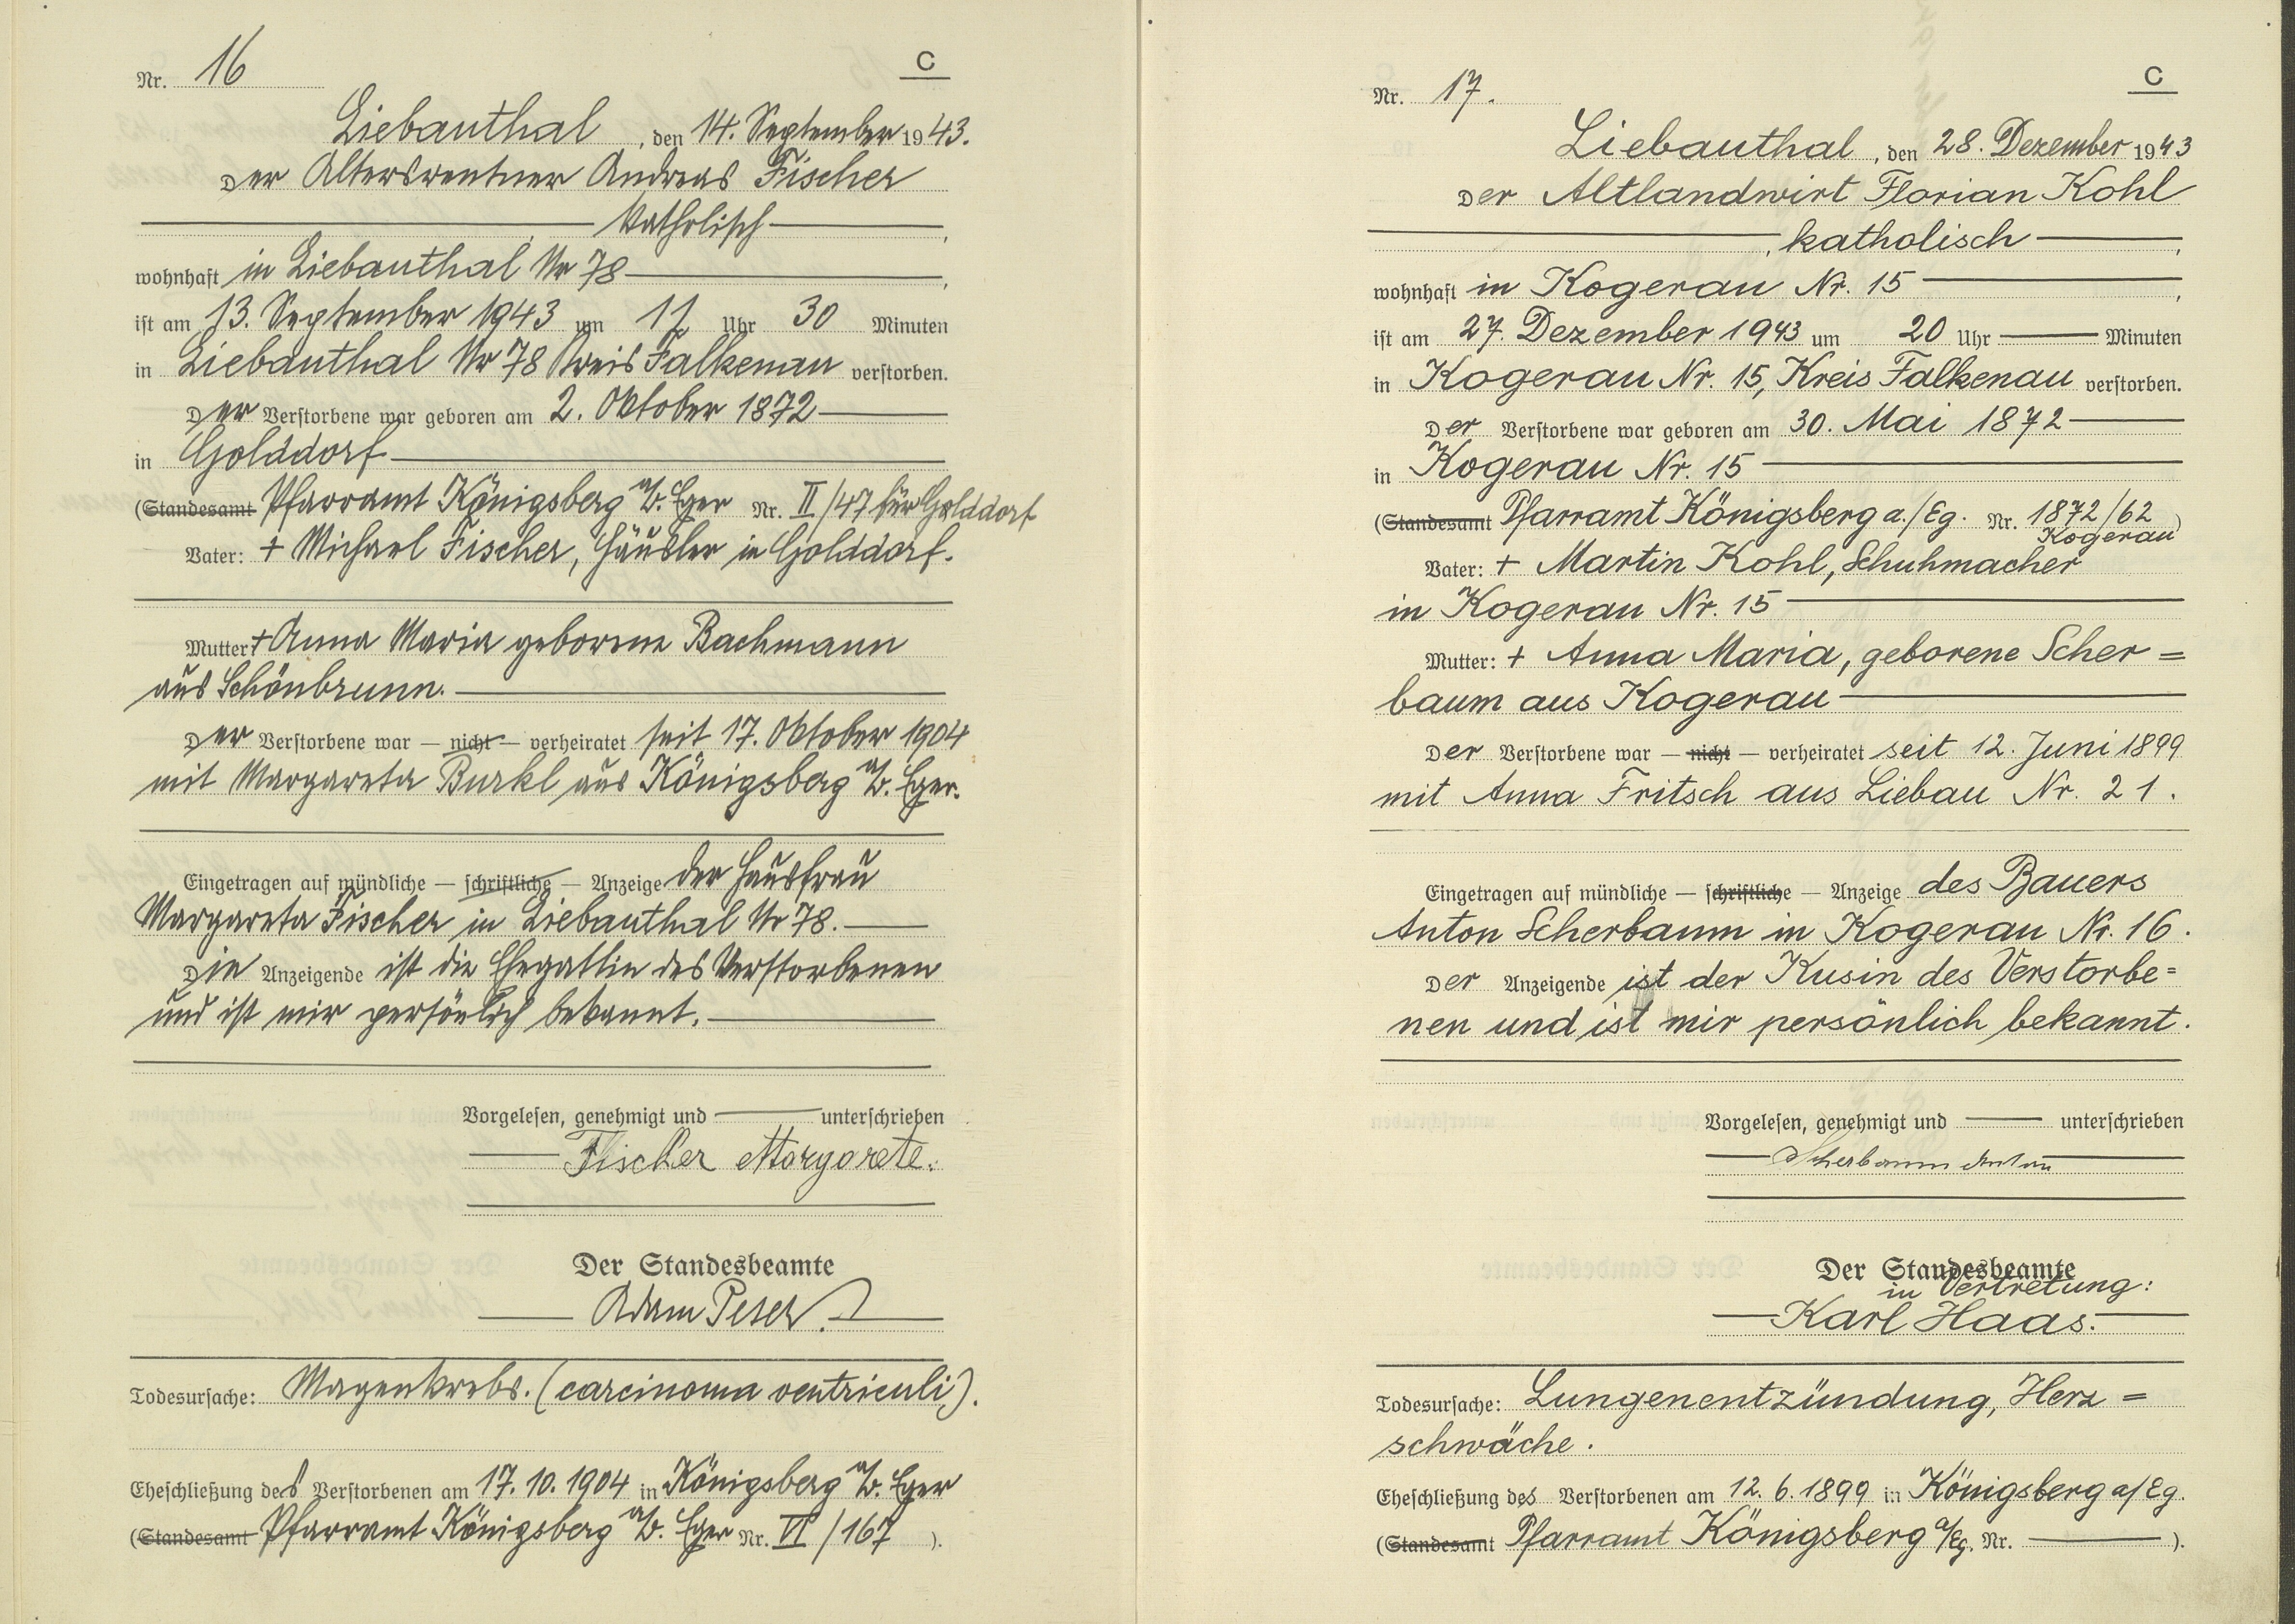 Nr. 16
C
Liebauthal, den 14. September 1943.
Der Altersrentner Andreas Fischer
katholisch,
wohnhaft in Liebauthal Nr 78,
ist am 13. September 1943 um 11 Uhr 30 Minuten
in Liebauthal Nr 78 Kreis Falkenau verstorben.
Der Verstorbene war geboren am 2. Oktober 1872
in Golddorf
(Standesamt Pfarramt Königsberg a/d. Eger Nr. II/47 für Golddorf
Vater: + Michael Fischer, Häusler in Golddorf.
Mutter + Anna Maria geborene Bachmann
aus Schönbrunn.
Der Verstorbene war — nicht — verheiratet seit 17. Oktober 1904
mit Margareta Burkl aus Königsberg a/d. Eger.
Eingetragen auf mündliche — schriftliche — Anzeige der Hausfrau
Margareta Fischer in Liebauthal Nr 78.
Die Anzeigende ist die Ehegattin des Verstorbenen
und ist mir persönlich bekannt.
Vorgelesen, genehmigt und unterschrieben
Fischer Margarete.
Der Standesbeamte
Adam Peser
Todesursache: Magenkrebs. (carcinoma ventriculi).
Eheschließung des Verstorbenen am 17. 10. 1904 in Königsberg a/d. Eger
(Standesamt Pfarramt Königsberg a/d. Eger Nr. VI/167 ).
Nr. 17.
C
Liebauthal, den 28. Dezember 1943
Der Altlandwirt Florian Kohl
, katholisch,
wohnhaft in Kogerau Nr. 15,
ist am 27. Dezember 1943 um 20 Uhr — Minuten
in Kogerau Nr. 15, Kreis Falkenau verstorben.
Der Verstorbene war geboren am 30. Mai 1872
in Kogerau Nr. 15
(Standesamt Pfarramt Königsberg a./Eg. Nr. 1872/62 )
Kogerau
Vater: + Martin Kohl, Schuhmacher
in Kogerau Nr. 15
Mutter: + Anna Maria, geborene Scher=
baum aus Kogerau
Der Verstorbene war — nicht — verheiratet seit 12. Juni 1899
mit Anna Fritsch aus Liebau Nr. 21.
Eingetragen auf mündliche — schriftliche — Anzeige des Bauers
Anton Scherbaum in Kogerau Nr. 16.
Der Anzeigende ist der Kusin des Verstorbe=
nen und ist mir persönlich bekannt.
Vorgelesen, genehmigt und — unterschrieben
Scherbaum Anton
Der Standesbeamte
in Vertretung:
Karl Haas.
Todesursache: Lungenentzündung, Herz=
schwäche.
Eheschließung des Verstorbenen am 12. 6. 1899 in Königsberg a/Eg.
(Standesamt Pfarramt Königsberg a/Eg. Nr. — ).